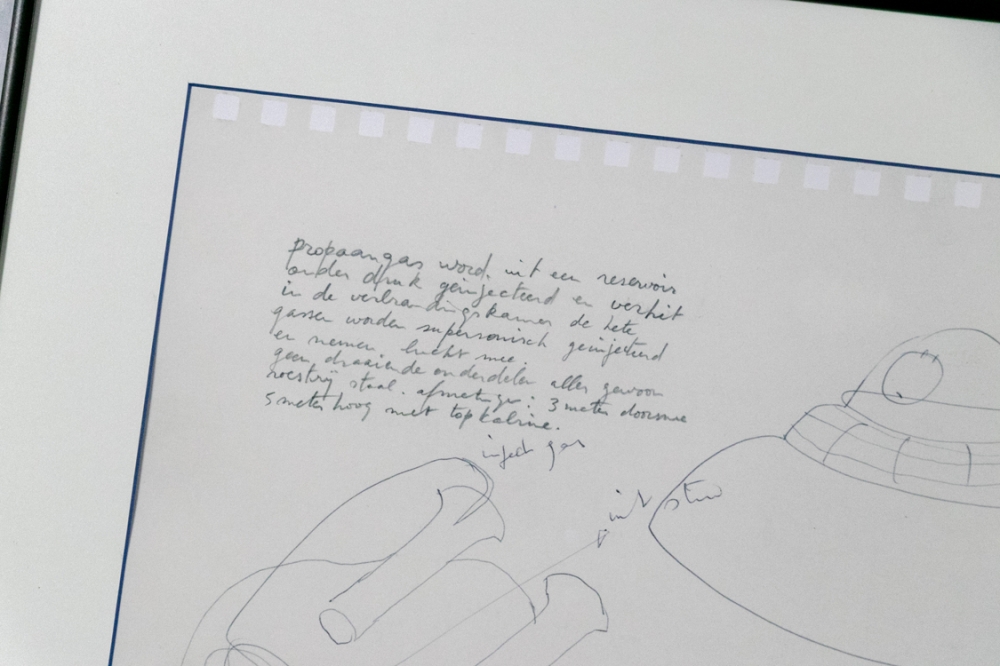 propaangas word. uit een reservoir
onder druk geinjecteerd en verhit
in de verbrandingskamer de hete
gassen worden supersonisch geinjecteerd
en nemen lucht mee.
geen draaiende onderdelen alles gewoon
roestvrij staal. afmetingen: 3 meter doorsnee
5 meter hoog met topkabine.
inject gas